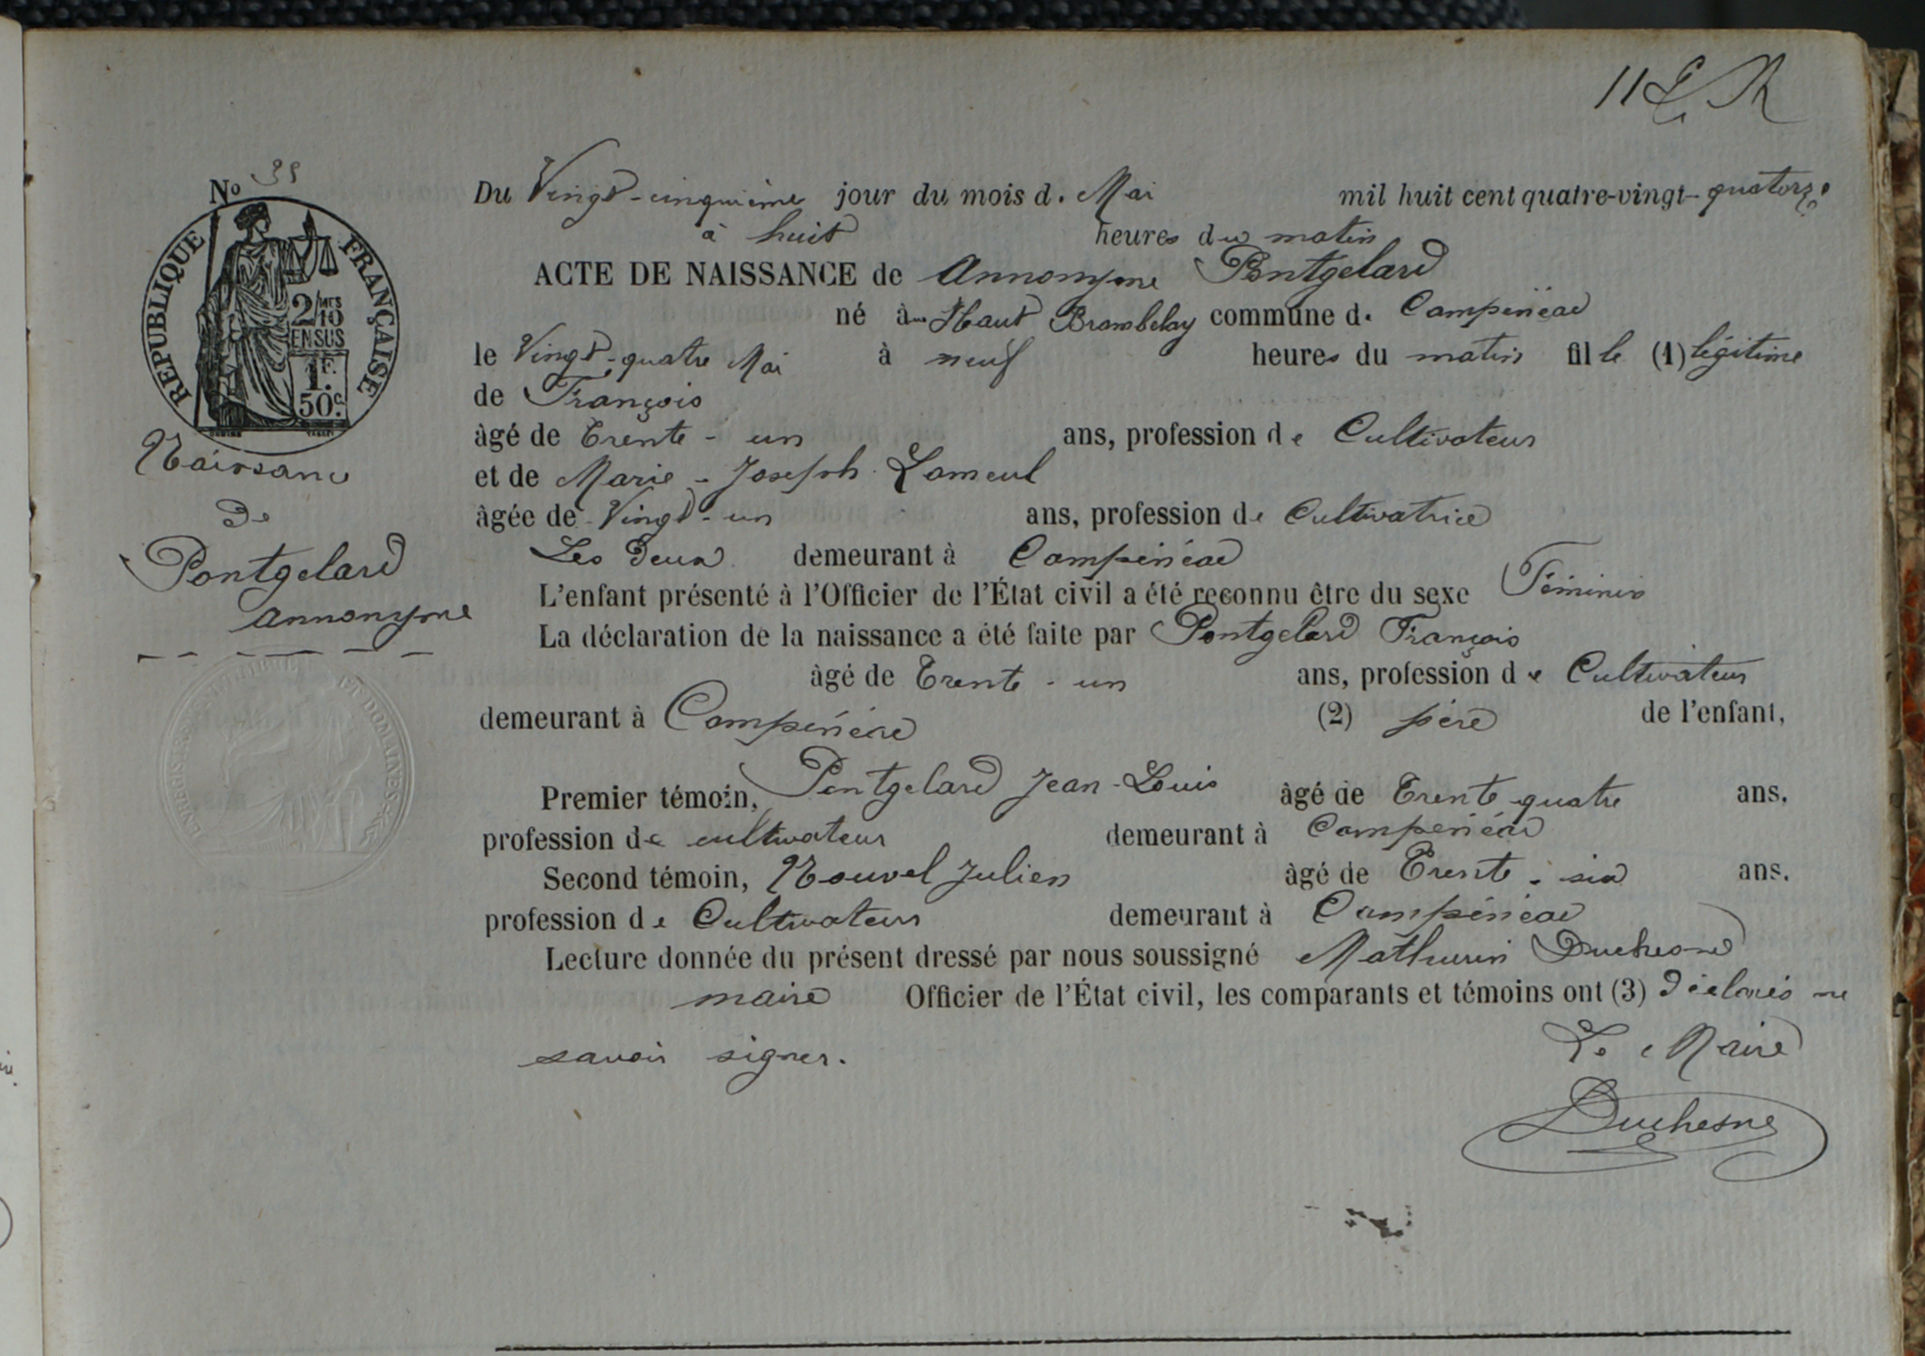 11
Nº
RÉPUBLIQUE FRANÇAISE
2/10
EN SUS
1F.
50c.
Naissance
De
Pontgelard
annonyme
Du Vingt-cinquième jour du mois de Mai mil huit cent quatre-vingt-quatorze
à huit heures du matin
ACTE DE NAISSANCE de Annonyme Pontgelard
né au Haut Brambelay commune de Campénéac
le Vingt-quatre Mai à neuf heures du matin fille (1) légitime
de François
âgé de Trente-un ans, profession de Cultivateur
et de Marie-Joseph Lameul
âgée de Vingt-un ans, profession de Cultivatrice
Les Deux demeurant à Campénéac
L'enfant présenté à l'Officier de l'État civil a été reconnu être du sexe Féminin
La déclaration de la naissance a été faite par Pontgelard François
âgé de Trente-un ans, profession de Cultivateur
demeurant à Campénéac (2) père de l'enfant,
Premier témoin, Pontgelard Jean-Louis âgé de Trente-quatre ans,
profession de cultivateur demeurant à Campénéac
Second témoin, Nouvel Julien âgé de Trente-six ans.
profession de Cultivateur demeurant à Campénéac
Lecture donnée du présent dressé par nous soussigné Mathurin Duchesne
maire Officier de l'État civil, les comparants et témoins ont (3) Déclarés ne
savoir signer.
Le Maire
Duchesne